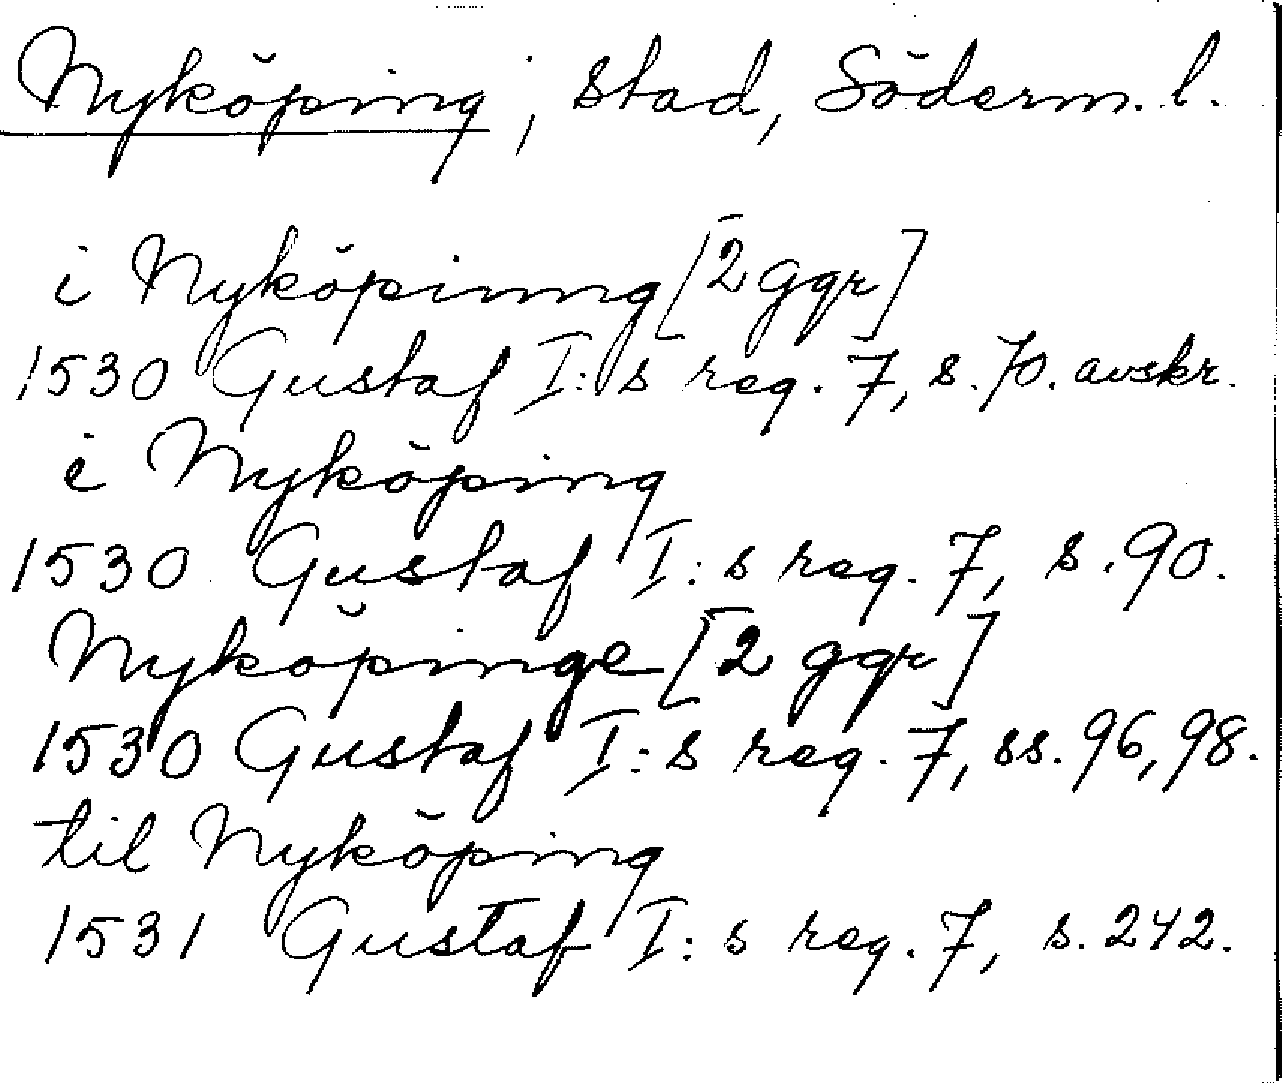 Nyköping, stad, Söderm. l.
i Nyköpinng [2 ggr]
1530 Gustaf I:s reg. 7, s. 70. avskr.
i Nyköping
1530 Gustaf I:s reg. 7, s. 90.
Nyköpinge [2 ggr]
1530 Gustaf I:s reg. 7, ss. 96, 98.
til Nyköping
1531 Gustaf I:s reg. 7, s. 242.